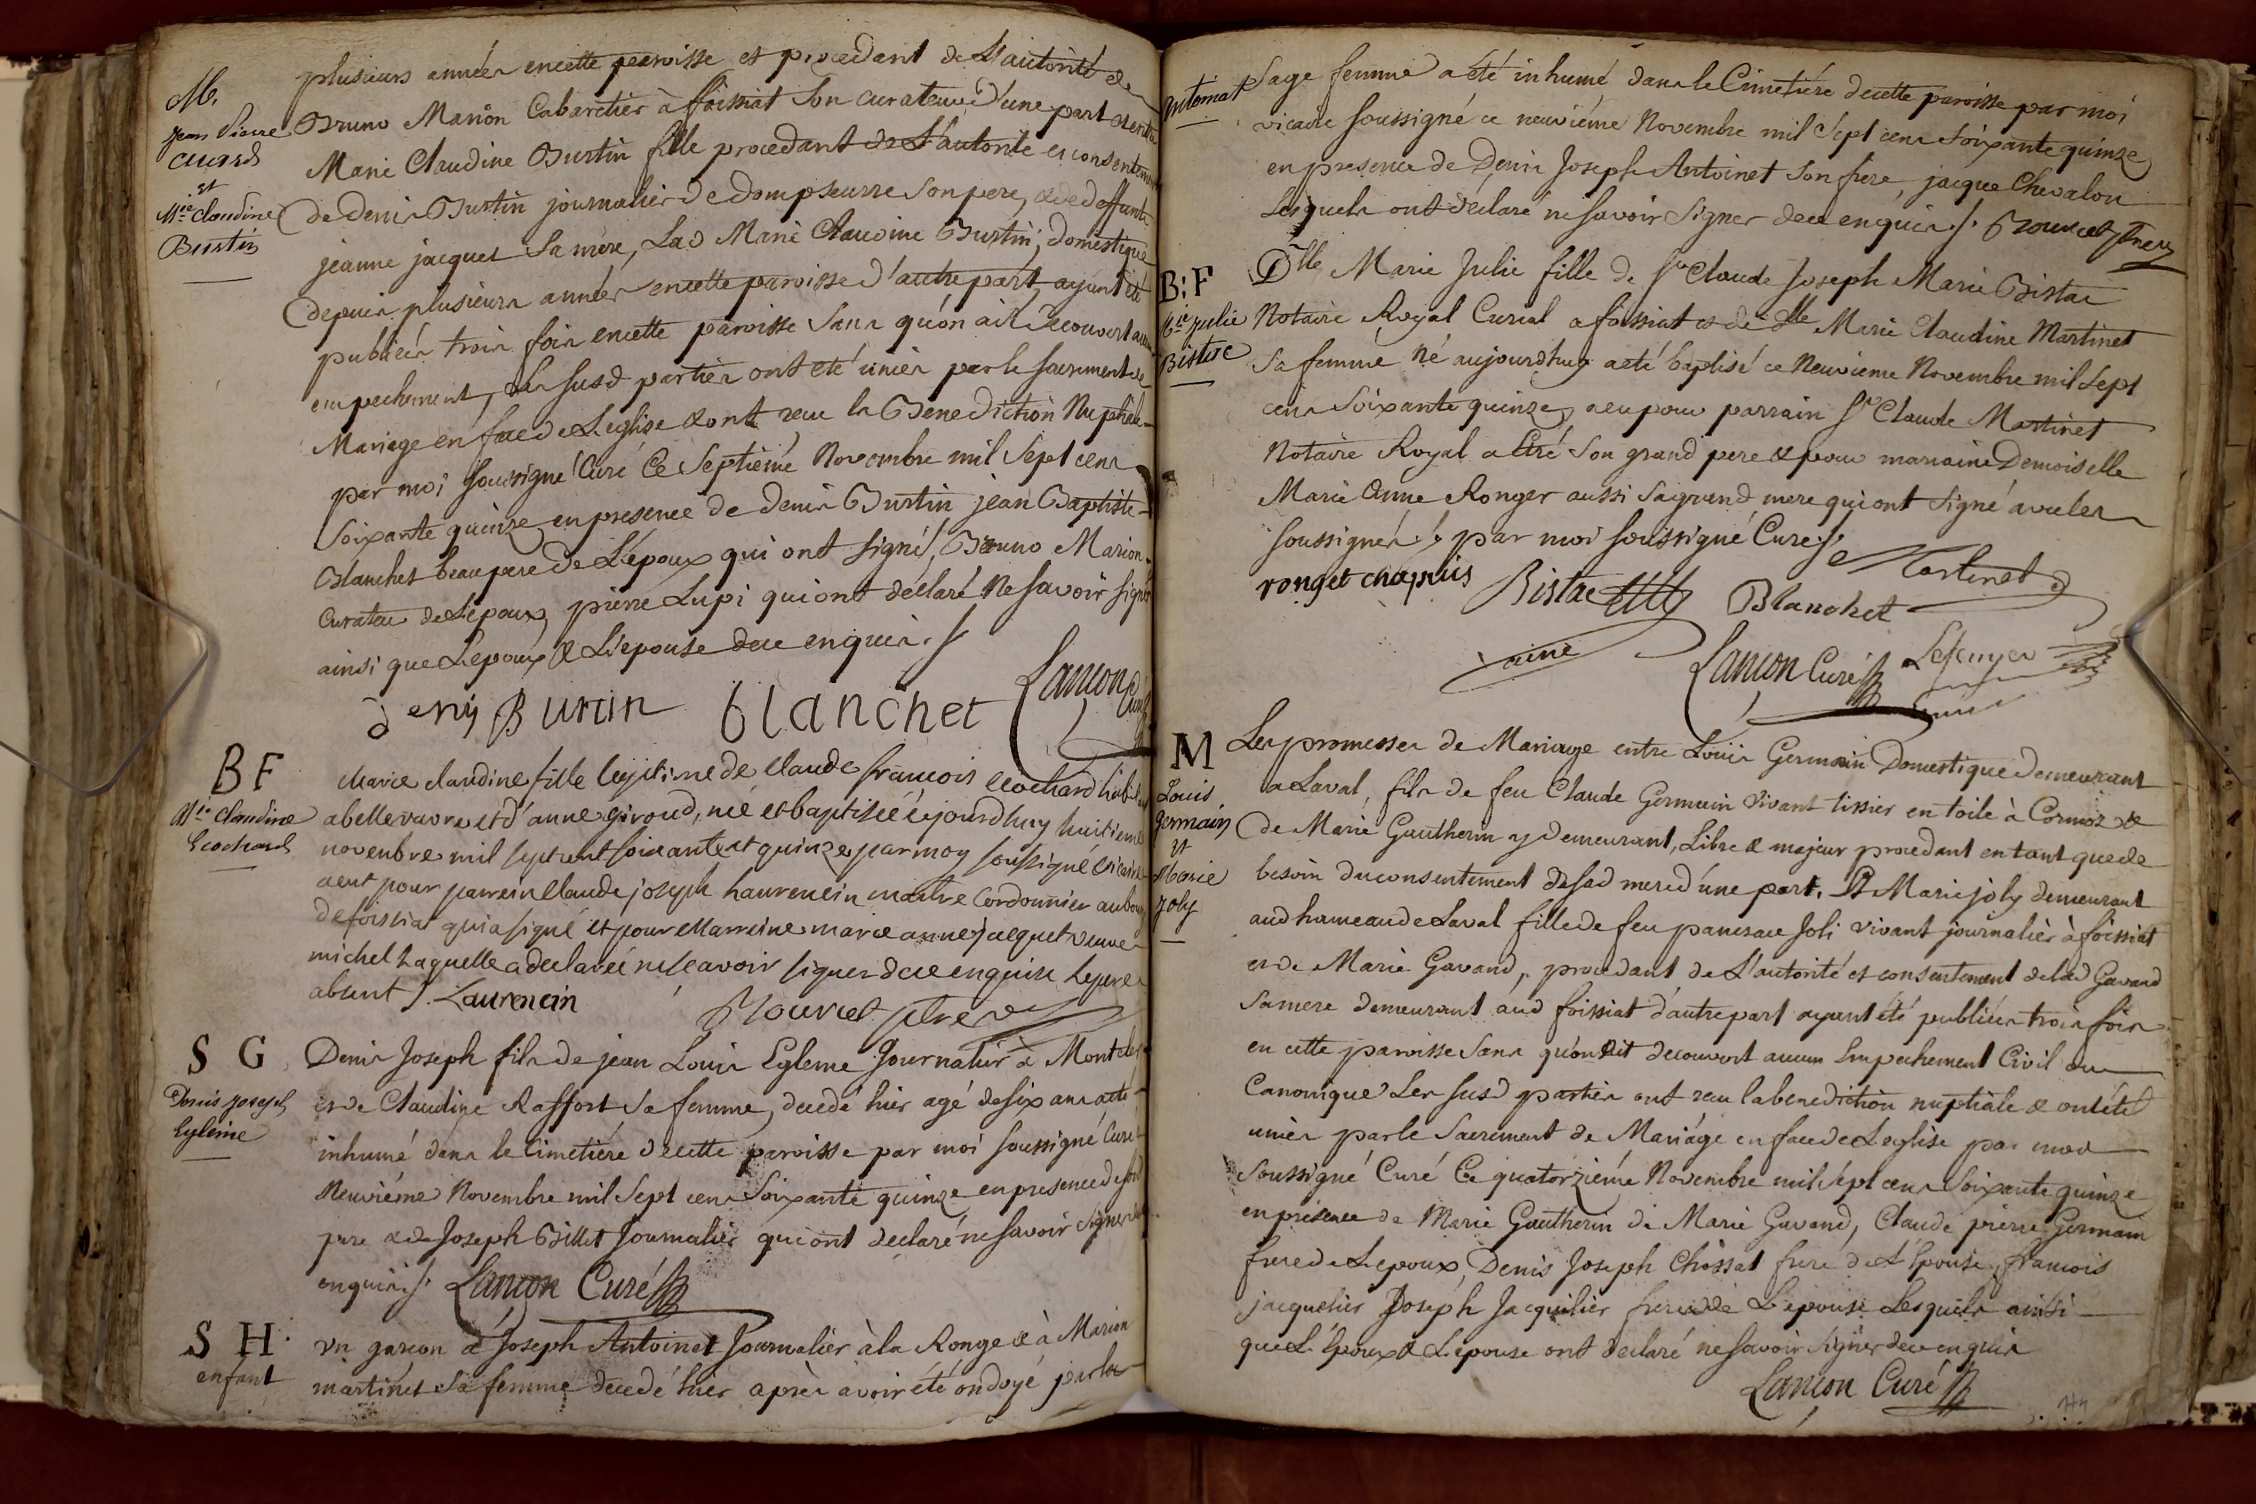 M.
jean Pierre
cuard
et
Mie Claudine
Burtin
plusieurs année encette paroisse et procedant de L'autorité de
Bruno Marion Cabaretier à foissiat Son curateur d'une part
Marie Claudine Burtin fille procedant de L'autorité et consentement
de denis Burtin journalier de dompseurre Son pere, & de deffunte
jeanne jacquet Sa mere, Lad Marie Claudine Burtin, domestique
depuis plusieurs année encette paroisse d'autre part, ayant été
publiées trois fois encette paroisse Sans qu'on ait decouvert
empechement, Les susd parties ont eté unies par le sacrement de
Mariage en face de L'eglise & ont recu la Benediction Nuptiale
par moi soussigné Curé Ce Septiéme Novembre mil Sept cens
Soixante quinze en presence de denis Burtin jean Baptiste
Blanchet beaupere de L'epoux qui ont signé, Bruno Marion
Curateur de L'epoux, pierre Lupi qui ont declaré Ne Savoir signer
ainsi que L'epoux & L'epouse dece enquis ./.
denis Burtin blanchet Lançon Curé
B F
Mie Claudine
Ecochard
Marie claudine fille legitime de Claude françois Ecochard
abellevavre et d'anne giroud, née et baptisée cejourdhuy huitieme
novenbre mil sept cent soixante et quinze par moy soussigné vicaire
aeut pour parrein Claude joseph haurencin maitre Cordonnier au bourg
de foissiat qui a signé et pour Marreine marie anne jacquet veuve
michel Laquelle a declareé ne scavoir signer dece enquise le pere
absent ./. Laurencin Mourcet ptre
S G
Denis joseph
Egleme
Denis Joseph fils de jean Louis Egleme Journalier à
et de Claudine Raffort Sa femme, decedé hier agé de six ans a eté
inhumé dans le Cimetiére decette paroisse par moi soussigné Curé
Neuviéme Novembre mil Sept cens Soixante quinze en presence de son
pere & de Joseph Billet Journalier qui ont declaré ne savoir signer
enquis ./. Lançon Curé
S H
enfant
Un garcon à Joseph Antoinet Journalier à la Ronge & à Marion
martinet Sa femme decedé hier après avoir été ondoyé par la
antoinat
Sage femme a été inhumé dans le Cimetiére decette paroisse par moi
vicaire soussigné ce neuviéme Novembre mil Sept cens Soixante quinze
en presence de Denis Joseph Antoinet Son frere, jacque Chevalon
Lesquels ont declaré ne savoir Signer dece enquis ./. Mourcet ptre
B: F
Mie julie
Bistac
Dlle Marie Julie fille de Sr Claude Joseph Marie Bistac
Notaire Royal Curial a foissiat & de Dlle Marie Claudine Martinet
Sa femme né aujourdhuy a eté baptisé ce Neuvieme Novembre mil Sept
cens Soixante quinze, a eu pour parrain Sr Claude Martinet
Notaire Royal a Etré Son grand pere & pour marraine Demoiselle
Marie Anne Ronger aussi Sa grand mere qui ont signé avec les
soussignés ./. par moi soussigné Curé ./.
ronget chapuis Bistac Martinet
ainé Blanchet
Lançon Curé
M
Louis
germain
et
Marie
joly
Les promesses de Mariage entre Louis Germain Domestique demeurant
a Laval, fils de feu Claude Germain vivant tissier en toile à Cormoz &
de Marie Gautherin y demeurant, Libre & majeur procedant en tant que de
besoin du consentement de sad mere d'une part. Et Marie joly demeurant
aud hameau de Laval fille de feu pancrace Joli vivant journalier à foissiat
et de Marie Gavand, procedant de L'autorité et consentement de lad Gavand
Sa mere demeurant aud foissiat d'autre part ayant été publiées trois fois
en cette paroisse Sans qu'on ait decouvert aucun Empechement Civil ou
Canonique Les susd parties ont recu la benediction nuptiale & ont été
unies par le Sacrement de Mariage en face de L'eglise par moi
soussigné Curé Ce quatorziéme Novembre mil Sept cens Soixante quinze
en présence de Marie Gautherin de Marie Gavand, Claude pierre Germain
frere de L'epoux, Denis Joseph Chossat frere de L'Epouse, francois
jacquelier Joseph Jacquelier frere de L'epouse Lesquels ainsi
que L'Epoux & L'epouse ont declaré ne savoir signer dece enquis
Lançon Curé